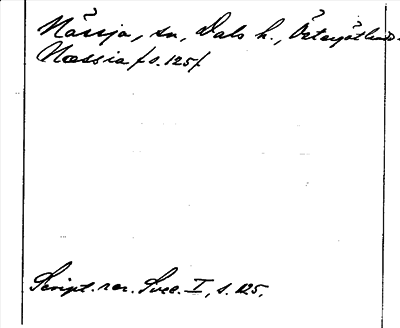 Nässja, sn, Dals h., Östergötland.
Næssia /s. 125/
Script. rer. Svec. I, s. 125.